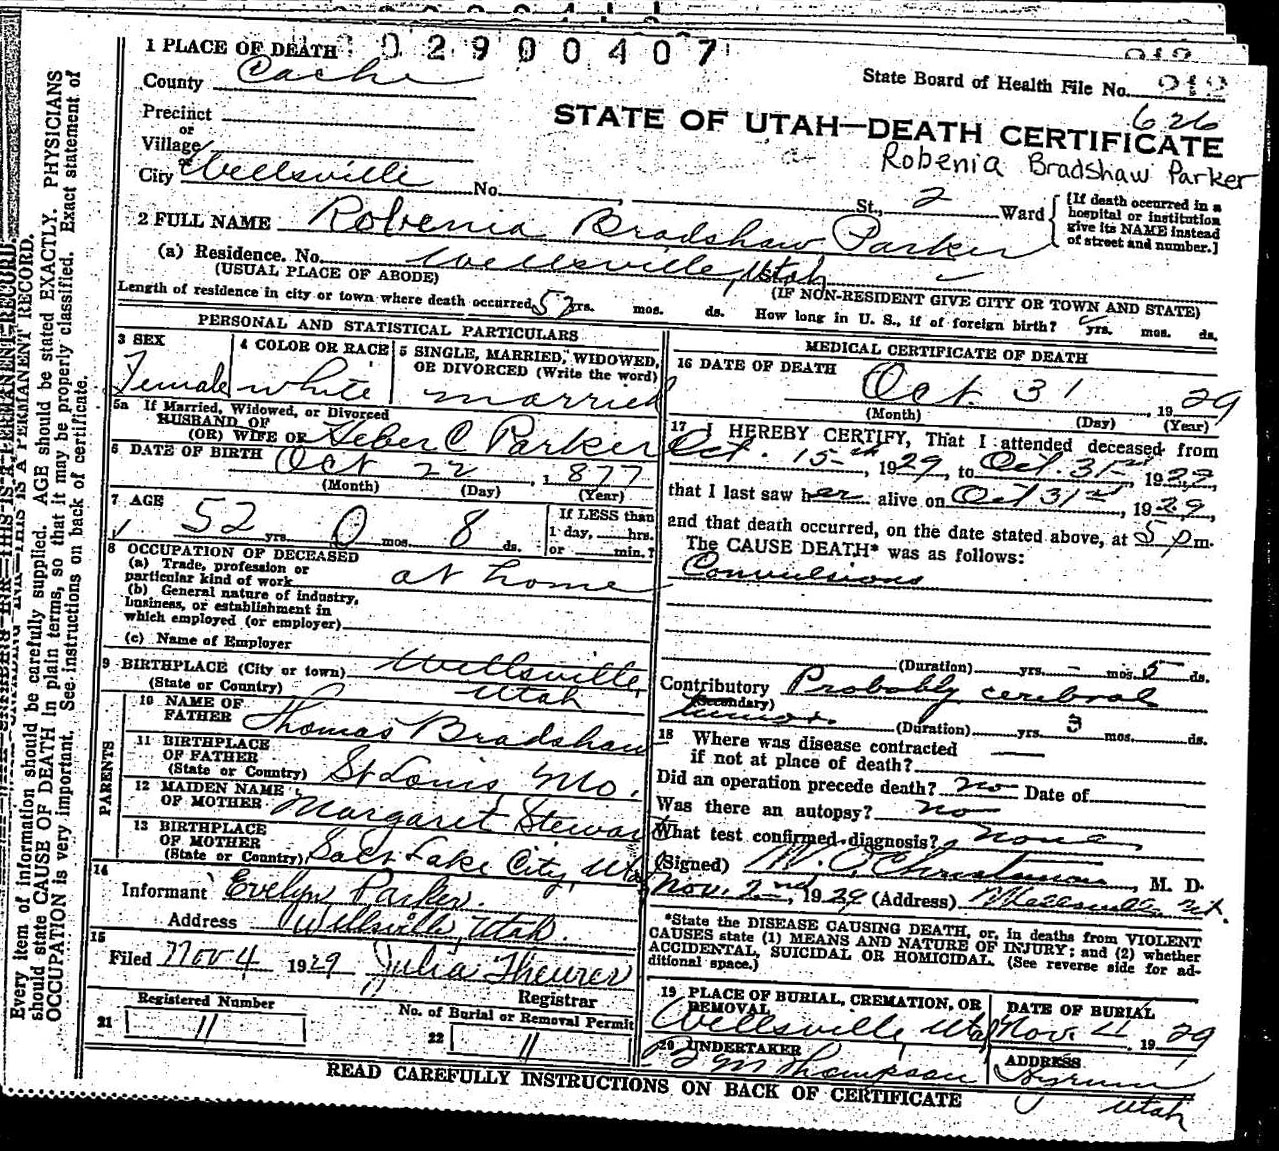 1 PLACE OF DEATH 02900407
County Cache
State Board of Health File No. 
626
Precinct
or
Village
or
City Wellsville No. St., 2 Ward
STATE OF UTAH—DEATH CERTIFICATE
Robenia Bradshaw Parker
[If death occurred in a
hospital or institution
give its NAME instead
of street and number.]
2 FULL NAME Robenia Bradshaw Parker
(a) Residence. No. Wellsville, Utah
(USUAL PLACE OF ABODE)
(IF NON-RESIDENT GIVE CITY OR TOWN AND STATE)
Length of residence in city or town where death occurred 52 yrs. mos. ds. How long in U. S., if of foreign birth? yrs. mos. ds.
PERSONAL AND STATISTICAL PARTICULARS
3 SEX
Female
4 COLOR OR RACE
white
5 SINGLE, MARRIED, WIDOWED,
OR DIVORCED (Write the word)
married
5a If Married, Widowed, or Divorced
HUSBAND OF
(OR) WIFE OF Heber C Parker
6 DATE OF BIRTH Oct 22, 1877
(Month) (Day) (Year)
7 AGE
52 yrs. 0 mos. 8 ds.
If LESS than
1 day, hrs.
or min.?
8 OCCUPATION OF DECEASED
(a) Trade, profession or
particular kind of work at home
(b) General nature of industry,
business, or establishment in
which employed (or employer)
(c) Name of Employer
9 BIRTHPLACE (City or town) Wellsville,
(State or Country) Utah
PARENTS
10 NAME OF
FATHER Thomas Bradshaw
11 BIRTHPLACE
OF FATHER
(State or Country) St Louis, Mo.
12 MAIDEN NAME
OF MOTHER Margaret Stewart
13 BIRTHPLACE
OF MOTHER
(State or Country) Salt Lake City, Utah
14
Informant Evelyn Parker.
Address Wellsville, Utah.
15
Filed Nov 4 1929 Julia Theurer
Registrar
Registered Number
21 11
No. of Burial or Removal Permit
22 11
MEDICAL CERTIFICATE OF DEATH
16 DATE OF DEATH
Oct. 31, 1929
(Month) (Day) (Year)
17 I HEREBY CERTIFY, That I attended deceased from
Oct. 15th, 1929, to Oct. 31st, 1929,
that I last saw her alive on Oct 31st, 1929,
and that death occurred, on the date stated above, at 5 pm.
The CAUSE DEATH* was as follows:
Convulsions
(Duration) yrs. - mos. 5 ds.
Contributory Probably cerebral
(Secondary)
tumor. (Duration) yrs. 3 mos. ds.
18 Where was disease contracted
if not at place of death?
Did an operation precede death? no Date of
Was there an autopsy? no
What test confirmed diagnosis? none
(Signed) W. O. Christensen, M. D.
Nov. 2nd, 1929 (Address) Wellsville Ut.
*State the DISEASE CAUSING DEATH, or, in deaths from VIOLENT
CAUSES state (1) MEANS AND NATURE OF INJURY; and (2) whether
ACCIDENTAL, SUICIDAL OR HOMICIDAL. (See reverse side for ad-
ditional space.)
19 PLACE OF BURIAL, CREMATION, OR
REMOVAL
Wellsville, Utah
DATE OF BURIAL
Nov. 4 1929
20 UNDERTAKER
Thompson
ADDRESS
Hyrum
Utah
READ CAREFULLY INSTRUCTIONS ON BACK OF CERTIFICATE
Every item of information should be carefully supplied. AGE should be stated EXACTLY. PHYSICIANS
should state CAUSE OF DEATH in plain terms, so that it may be properly classified. Exact statement of
OCCUPATION is very important. See instructions on back of certificate.